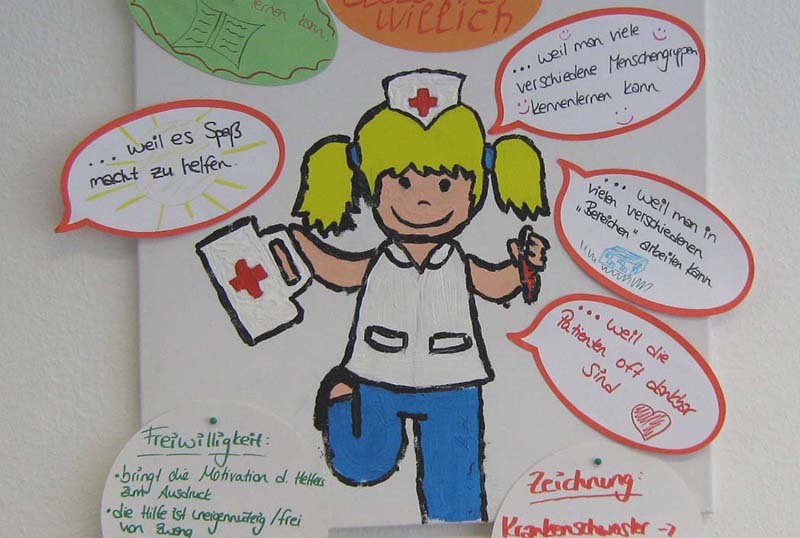 lernen kann
willich
... weil man viele
verschiedene Menschengruppen
kennenlernen kann
... weil es Spaß
macht zu helfen.
... weil man in
vielen verschiedenen
"Bereichen" arbeiten kann
... weil die
Patienten oft dankbar
sind
Freiwilligkeit:
• bringt die Motivation d. Helfers
zum Ausdruck
• die Hilfe ist uneigennützig/frei
von Zwang
Zeichnung:
Krankenschwester →